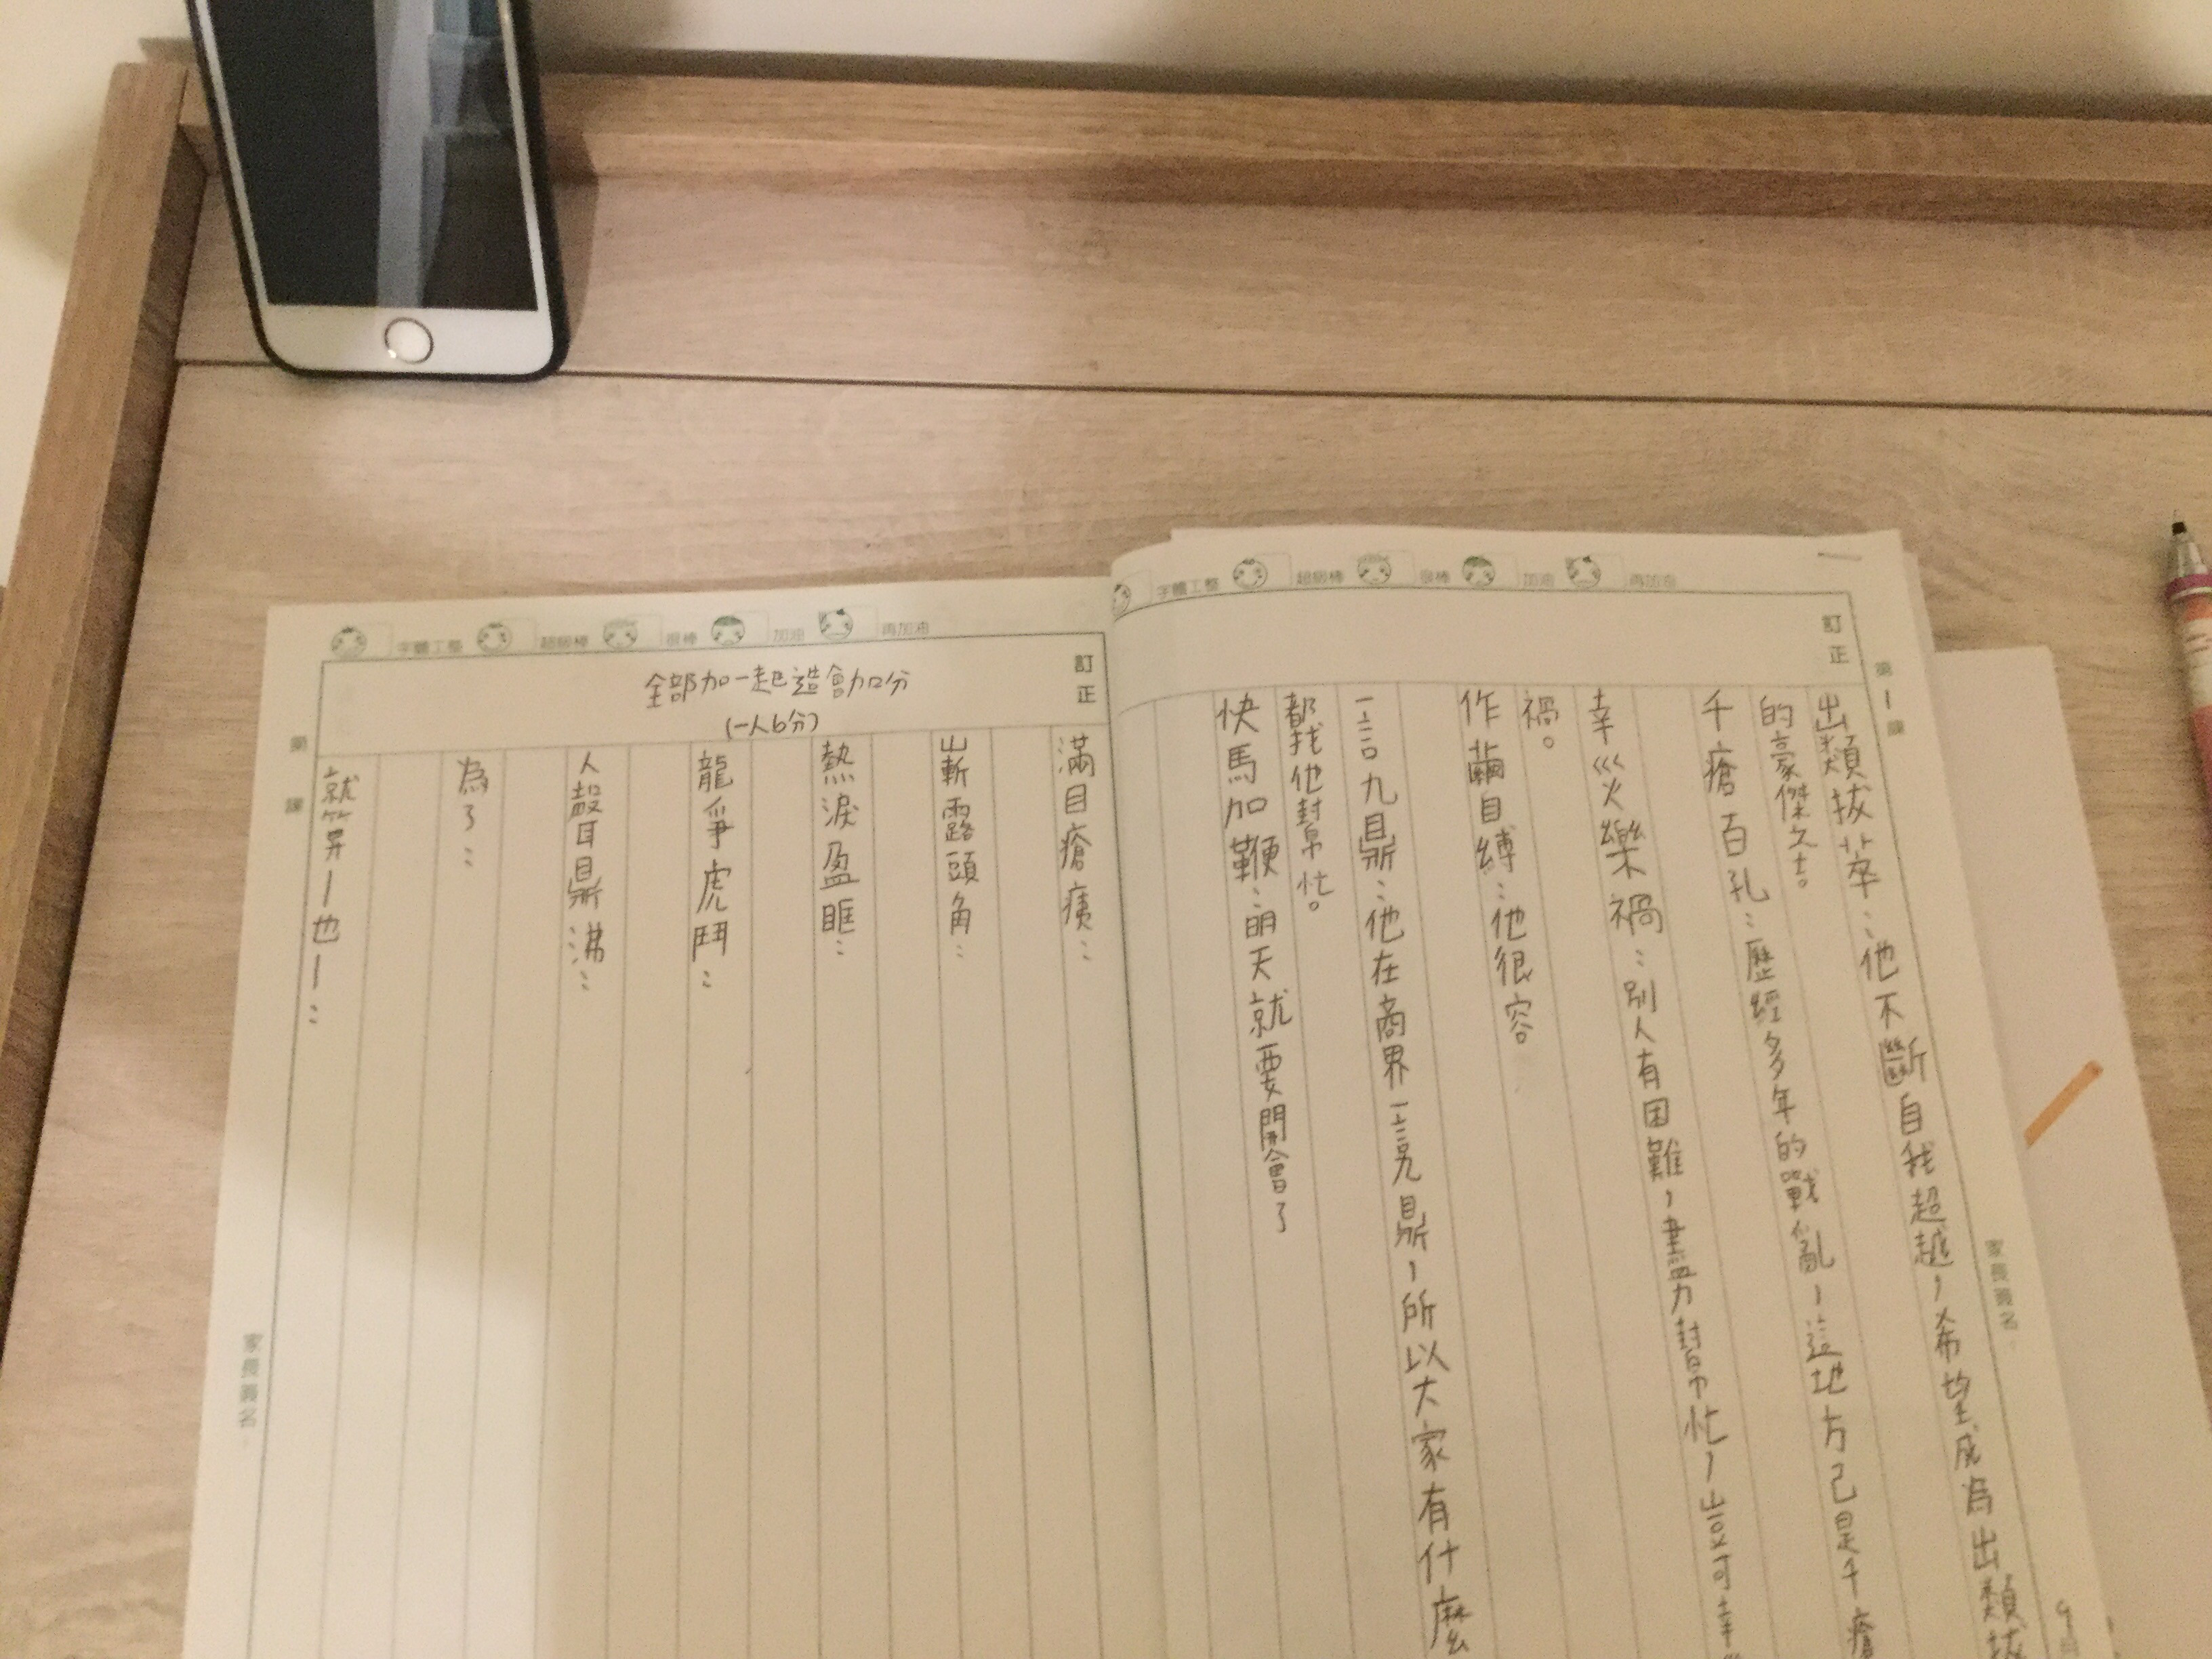 字體工整 超級棒 很棒 加油 再加油
訂正
第1課
出類拔萃：他不斷自我超越，希望成為出類拔
的豪傑之士。
千瘡百孔：歷經多年的戰亂，這地方已是千瘡
幸災樂禍：別人有困難，盡力幫忙，豈可幸災
禍。
作繭自縛：他很容
一言九鼎：他在商界一言九鼎，所以大家有什麼
都找他幫忙。
快馬加鞭：明天就要開會了
家長簽名
字體工整 超級棒 很棒 加油 再加油
訂正
全部加一起造會加分
(一人6分)
滿目瘡痍：
嶄露頭角：
熱淚盈眶：
龍爭虎鬥：
人聲鼎沸：
為了：
就算—也—：
第 課
家長簽名